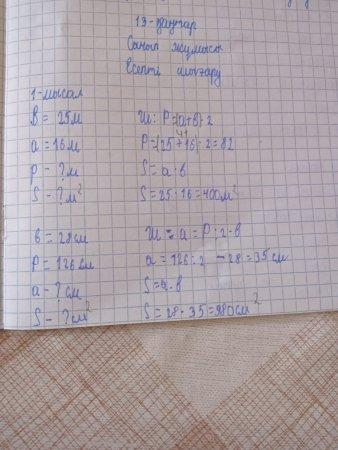 13-қаңтар
Сынып жұмысы
Есепті шығару
1-мысал
в = 25м Ш: P=(a+в)·2
a = 16м 41
P - ?м P=(25+16)·2=82
S - ?м² S=a·в
S=25·16=400м²
в=28см Ш: a=P:2-в
P=126см a=126:2-28=35см
a-?см S=a·в
S-?см² S=28·35=980см²